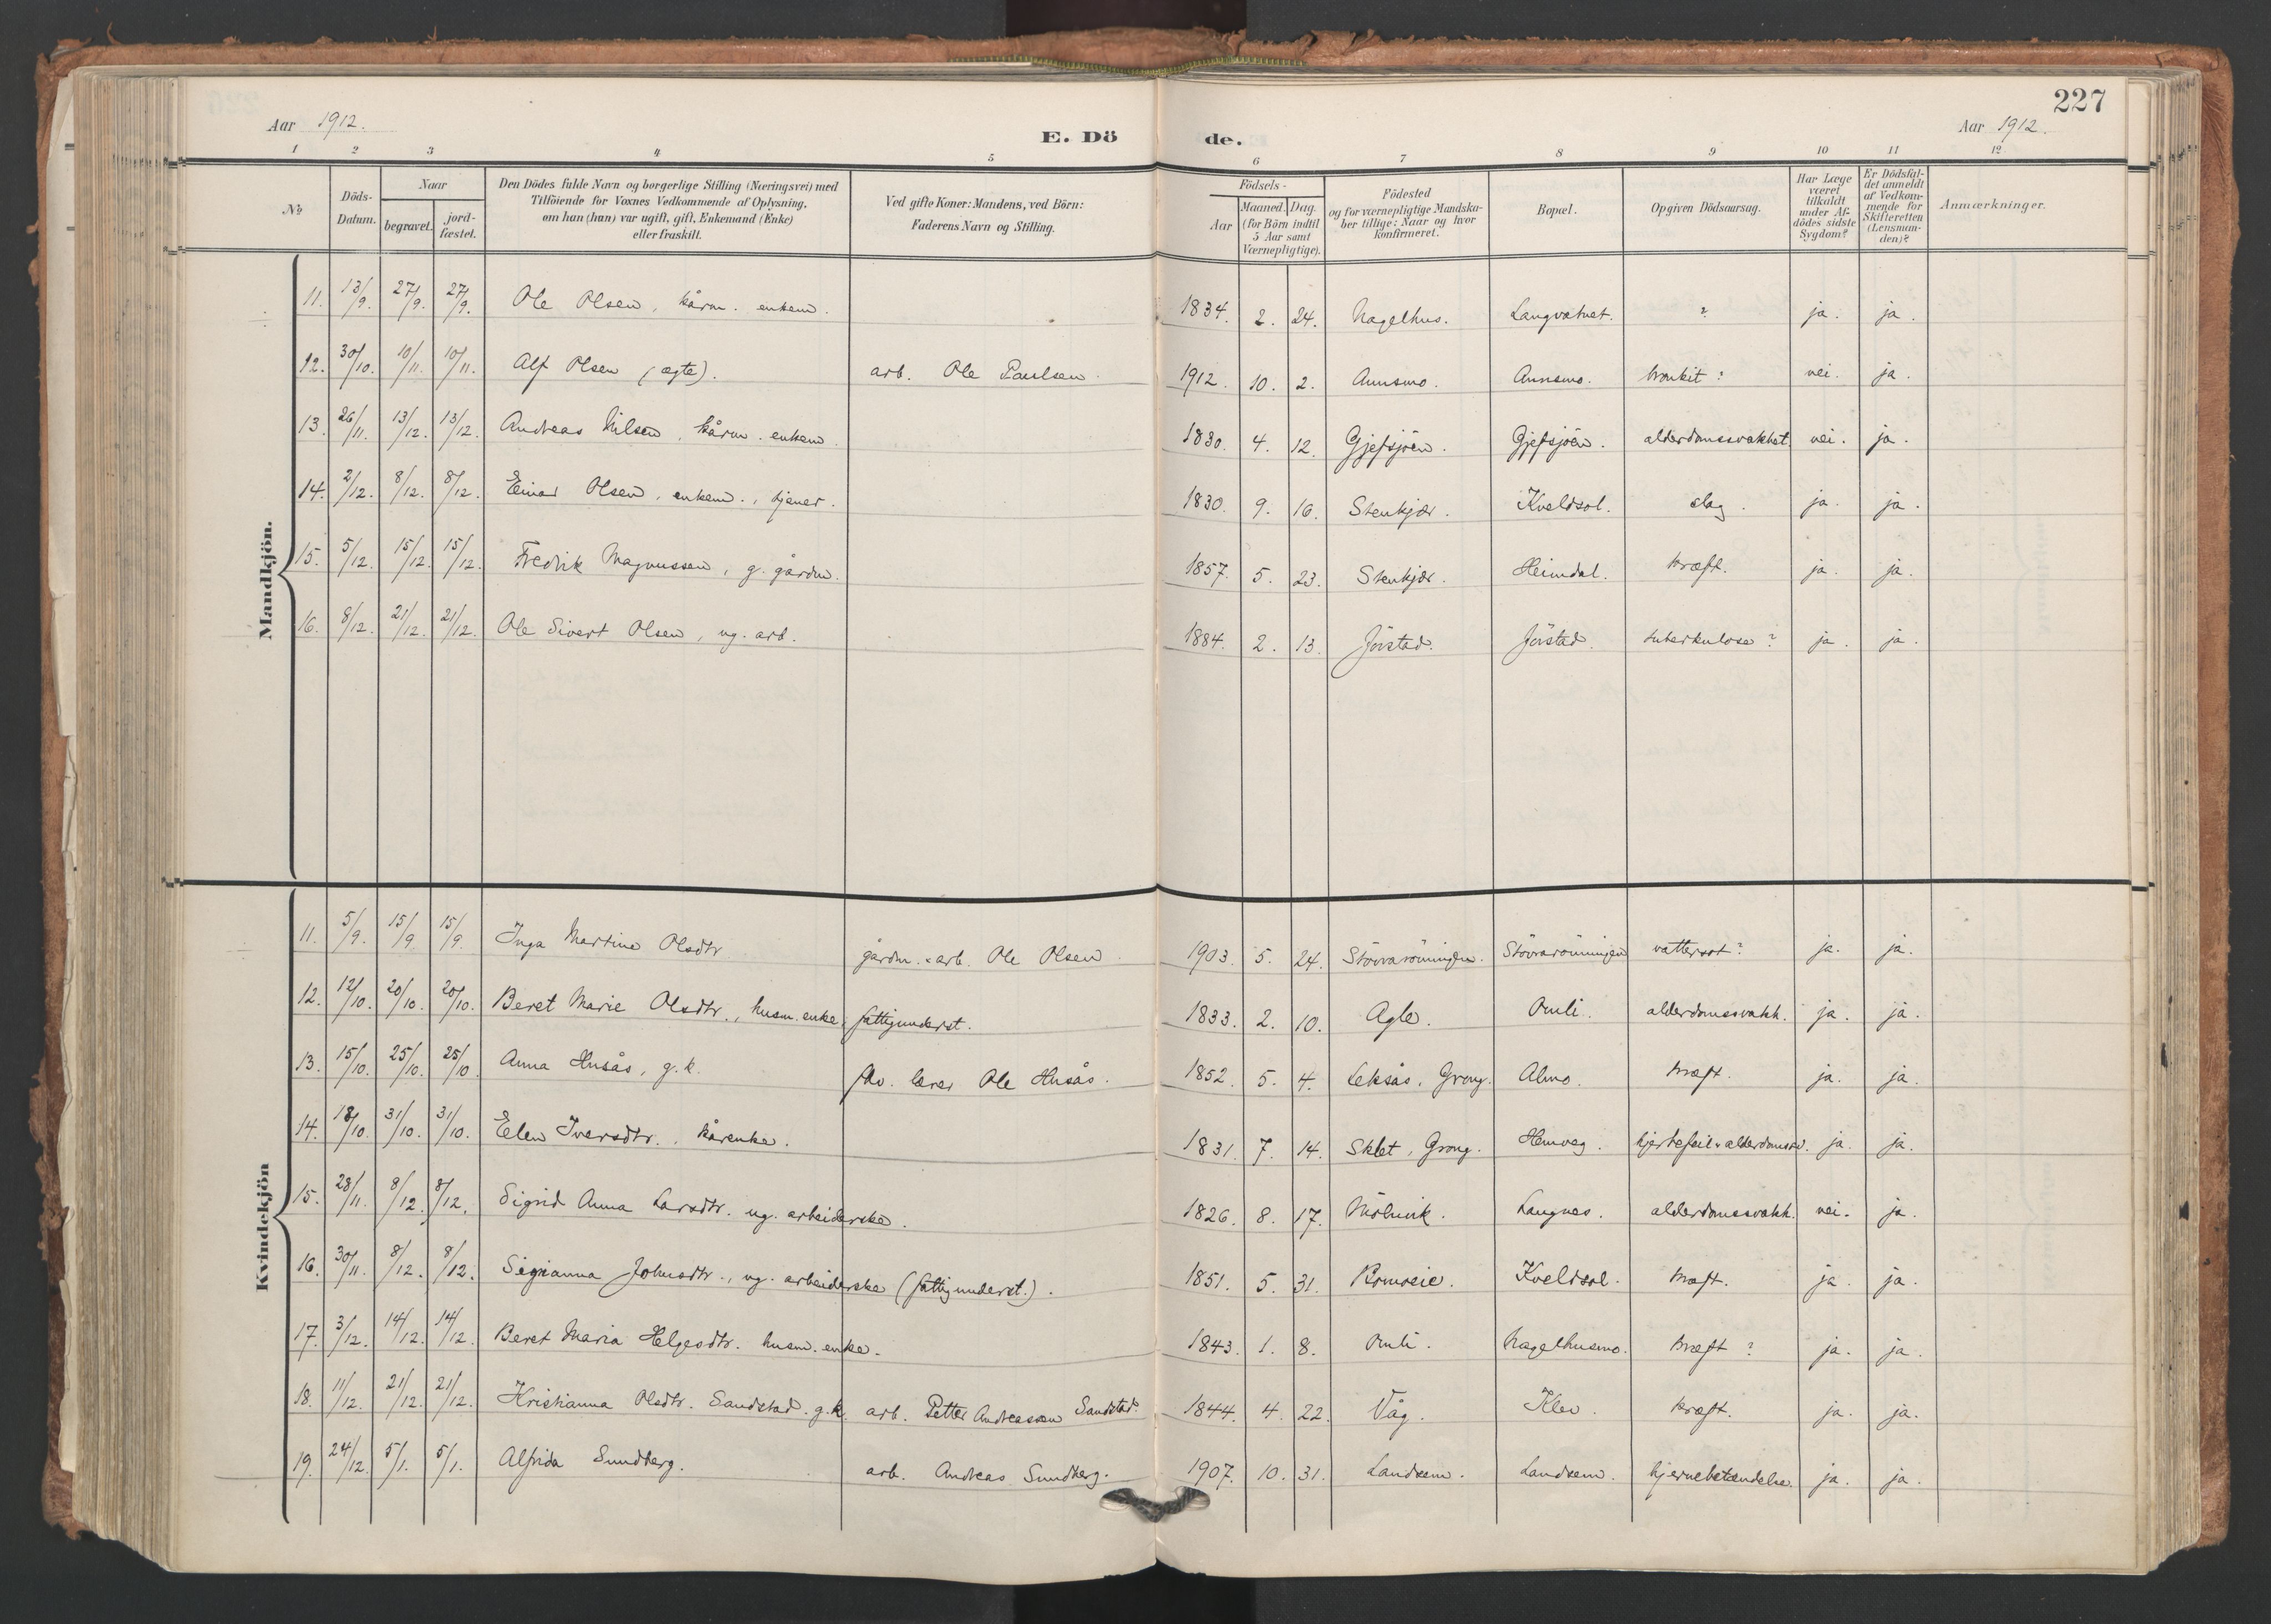 227
Aar 1912.
E. Dö de.
Aar 1912.
1 2 3 4 5 6 7 8 9 10 11 12
№
Döds-Datum.
Naar
begravet.
jord-fæstet.
Den Dödes fulde Navn og borgerlige Stilling (Næringsvei) med
Tilföiende for Voxnes Vedkommende af Oplysning,
om han (hun) var ugift, gift, Enkemand (Enke)
eller fraskilt.
Ved gifte Koner: Mandens, ved Börn:
Faderens Navn og Stilling.
Födsels-
Aar
Maaned. Dag.
(for Börn indtil
5 Aar samt
Værnepligtige).
Födested
og for værnepligtige Mandska-
ber tillige: Naar og hvor
konfirmeret.
Bopæl.
Opgiven Dödsaarsag.
Har Læge
været
tilkaldt
under Af-
dödes sidste
Sygdom?
Er Dödsfal-
det anmeldt
af Vedkom-
mende for
Skifteretten
(Lensman-
den)?
Anmærkninger.
Mandkjön.
11. 13/9. 27/9. 27/9. Ole Olsen, kårm. enkem. 1834. 2. 24. Nagelhus. Langvatnet. ? ja. ja.
12. 30/10. 10/11. 10/11. Alf Olsen (ægte). arb. Ole Paulsen. 1912. 10. 2. Aunsmo. Aunsmo. bronkit? nei. ja.
13. 26/11. 13/12. 13/12. Andreas Nilsen, kårm. enkem. 1830. 4. 12. Gjefsjöen. Gjefsjöen. alderdomssvakhet nei. ja.
14. 2/12. 8/12. 8/12. Einar Olsen, enkem., tjener. 1830. 9. 16. Stenkjær. Kveldsol. slag. ja. ja.
15. 5/12. 15/12. 15/12. Fredrik Magnussen, g. gårdm. 1857. 5. 23. Stenkjær. Heimdal. kræft. ja. ja.
16. 8/12. 21/12. 21/12. Ole Sivert Olsen, ug. arb. 1884. 2. 13. Jörstad. Jörstad. tuberkulose? ja. ja.
Kvindekjön
11. 5/9. 15/9. 15/9. Inga Martine Olsdtr. gårdm. & arb. Ole Olsen. 1903. 5. 24. Stövvarönningen. Stövvarönningen vattersot? ja. ja.
12. 12/10. 20/10. 20/10. Beret Marie Olsdtr., husm. enke, fattigunderst. 1833. 2. 10. Agle. Omli. alderdomssvakh. ja. ja.
13. 15/10. 25/10. 25/10. Anna Husås, g.k. fhv. lærer Ole Husås. 1852. 5. 4. Leksås, Grong. Almo. kræft. ja. ja.
14. 18/10. 31/10. 31/10. Elen Iversdtr., kårenke. 1831. 7. 14. Sklet, Grong. Homveg. hjertefeil & alderdomssv. ja. ja.
15. 28/11. 8/12. 8/12. Sigrid Anna Larsdtr. ug. arbeiderske. 1826. 8. 17. Mölnvik. Langnes. alderdomssvakh. nei. ja.
16. 30/11. 8/12. 8/12. Sigrianna Johnsdtr., ug. arbeiderske (fattigunderst.). 1851. 5. 31. Romoeie. Kveldsol. kræft. ja. ja.
17. 3/12. 14/12. 14/12. Beret Maria Helgesdtr. husm. enke. 1843. 1. 8. Omli. Nagelhusmo. kræft? ja. ja.
18. 11/12. 21/12. 21/12. Kristianna Olsdtr. Sandstad. g.k. arb. Petter Andreassen Sandstad. 1844. 4. 22. Våg. Klev. kræft. ja. ja.
19. 24/12. 5/1. 5/1. Alfrida Sundberg. arb. Andreas Sundberg. 1907. 10. 31. Landsem. Landsem. hjernebetændelse. ja. ja.